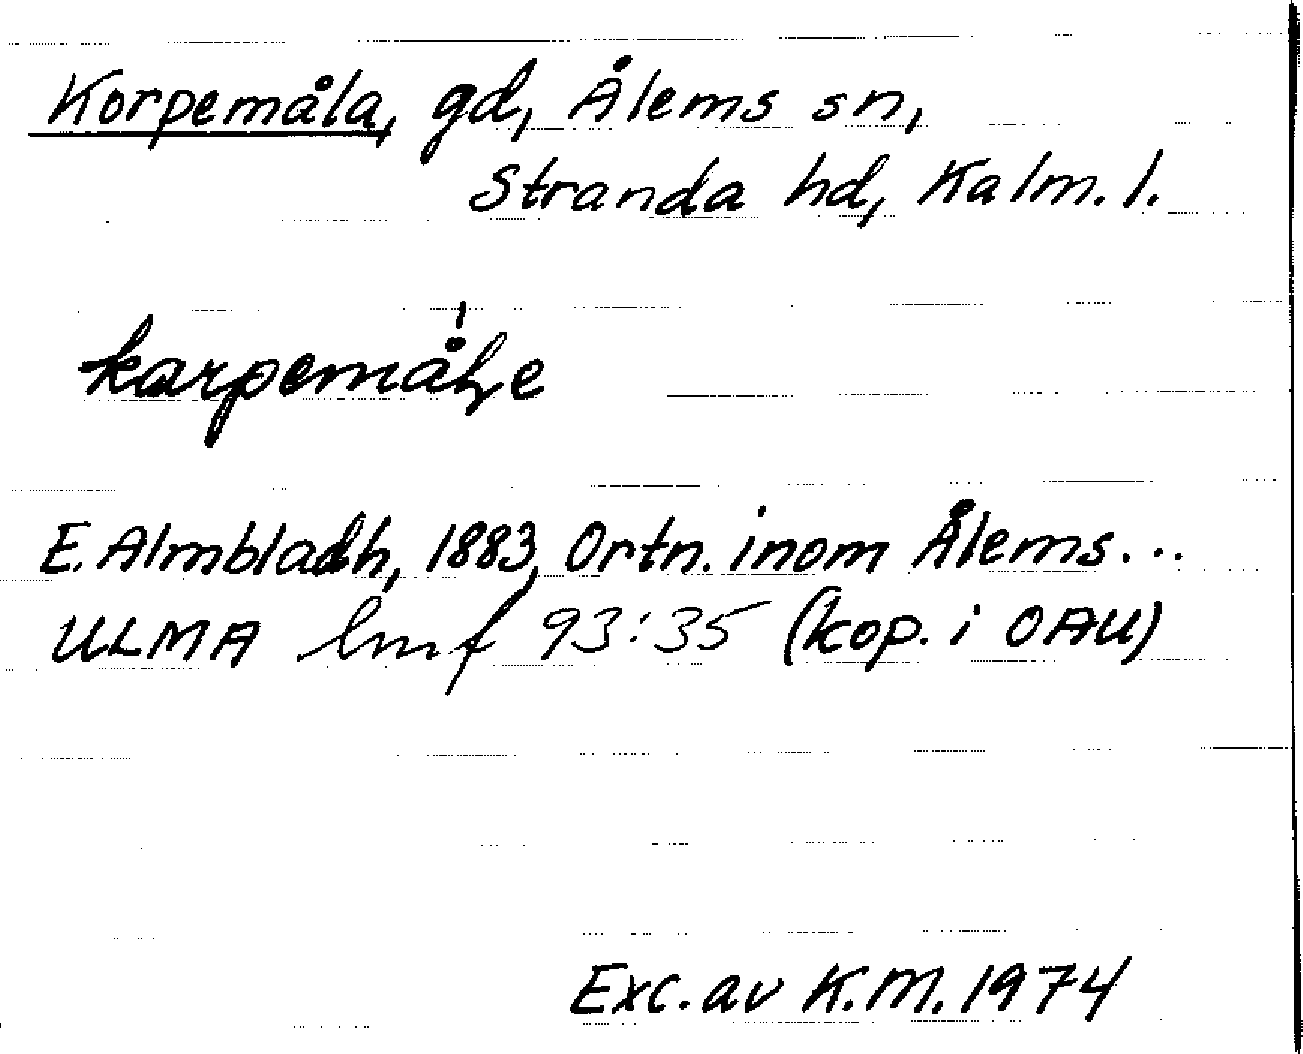 Korpemåla, gd, Ålems sn,
Stranda hd, Kalm. l.
karpemåle
E. Almbladh, 1883, Ortn. inom Ålems...
ULMA lmf 93:35 (kop. i OAU)
Exc. av K.M. 1974